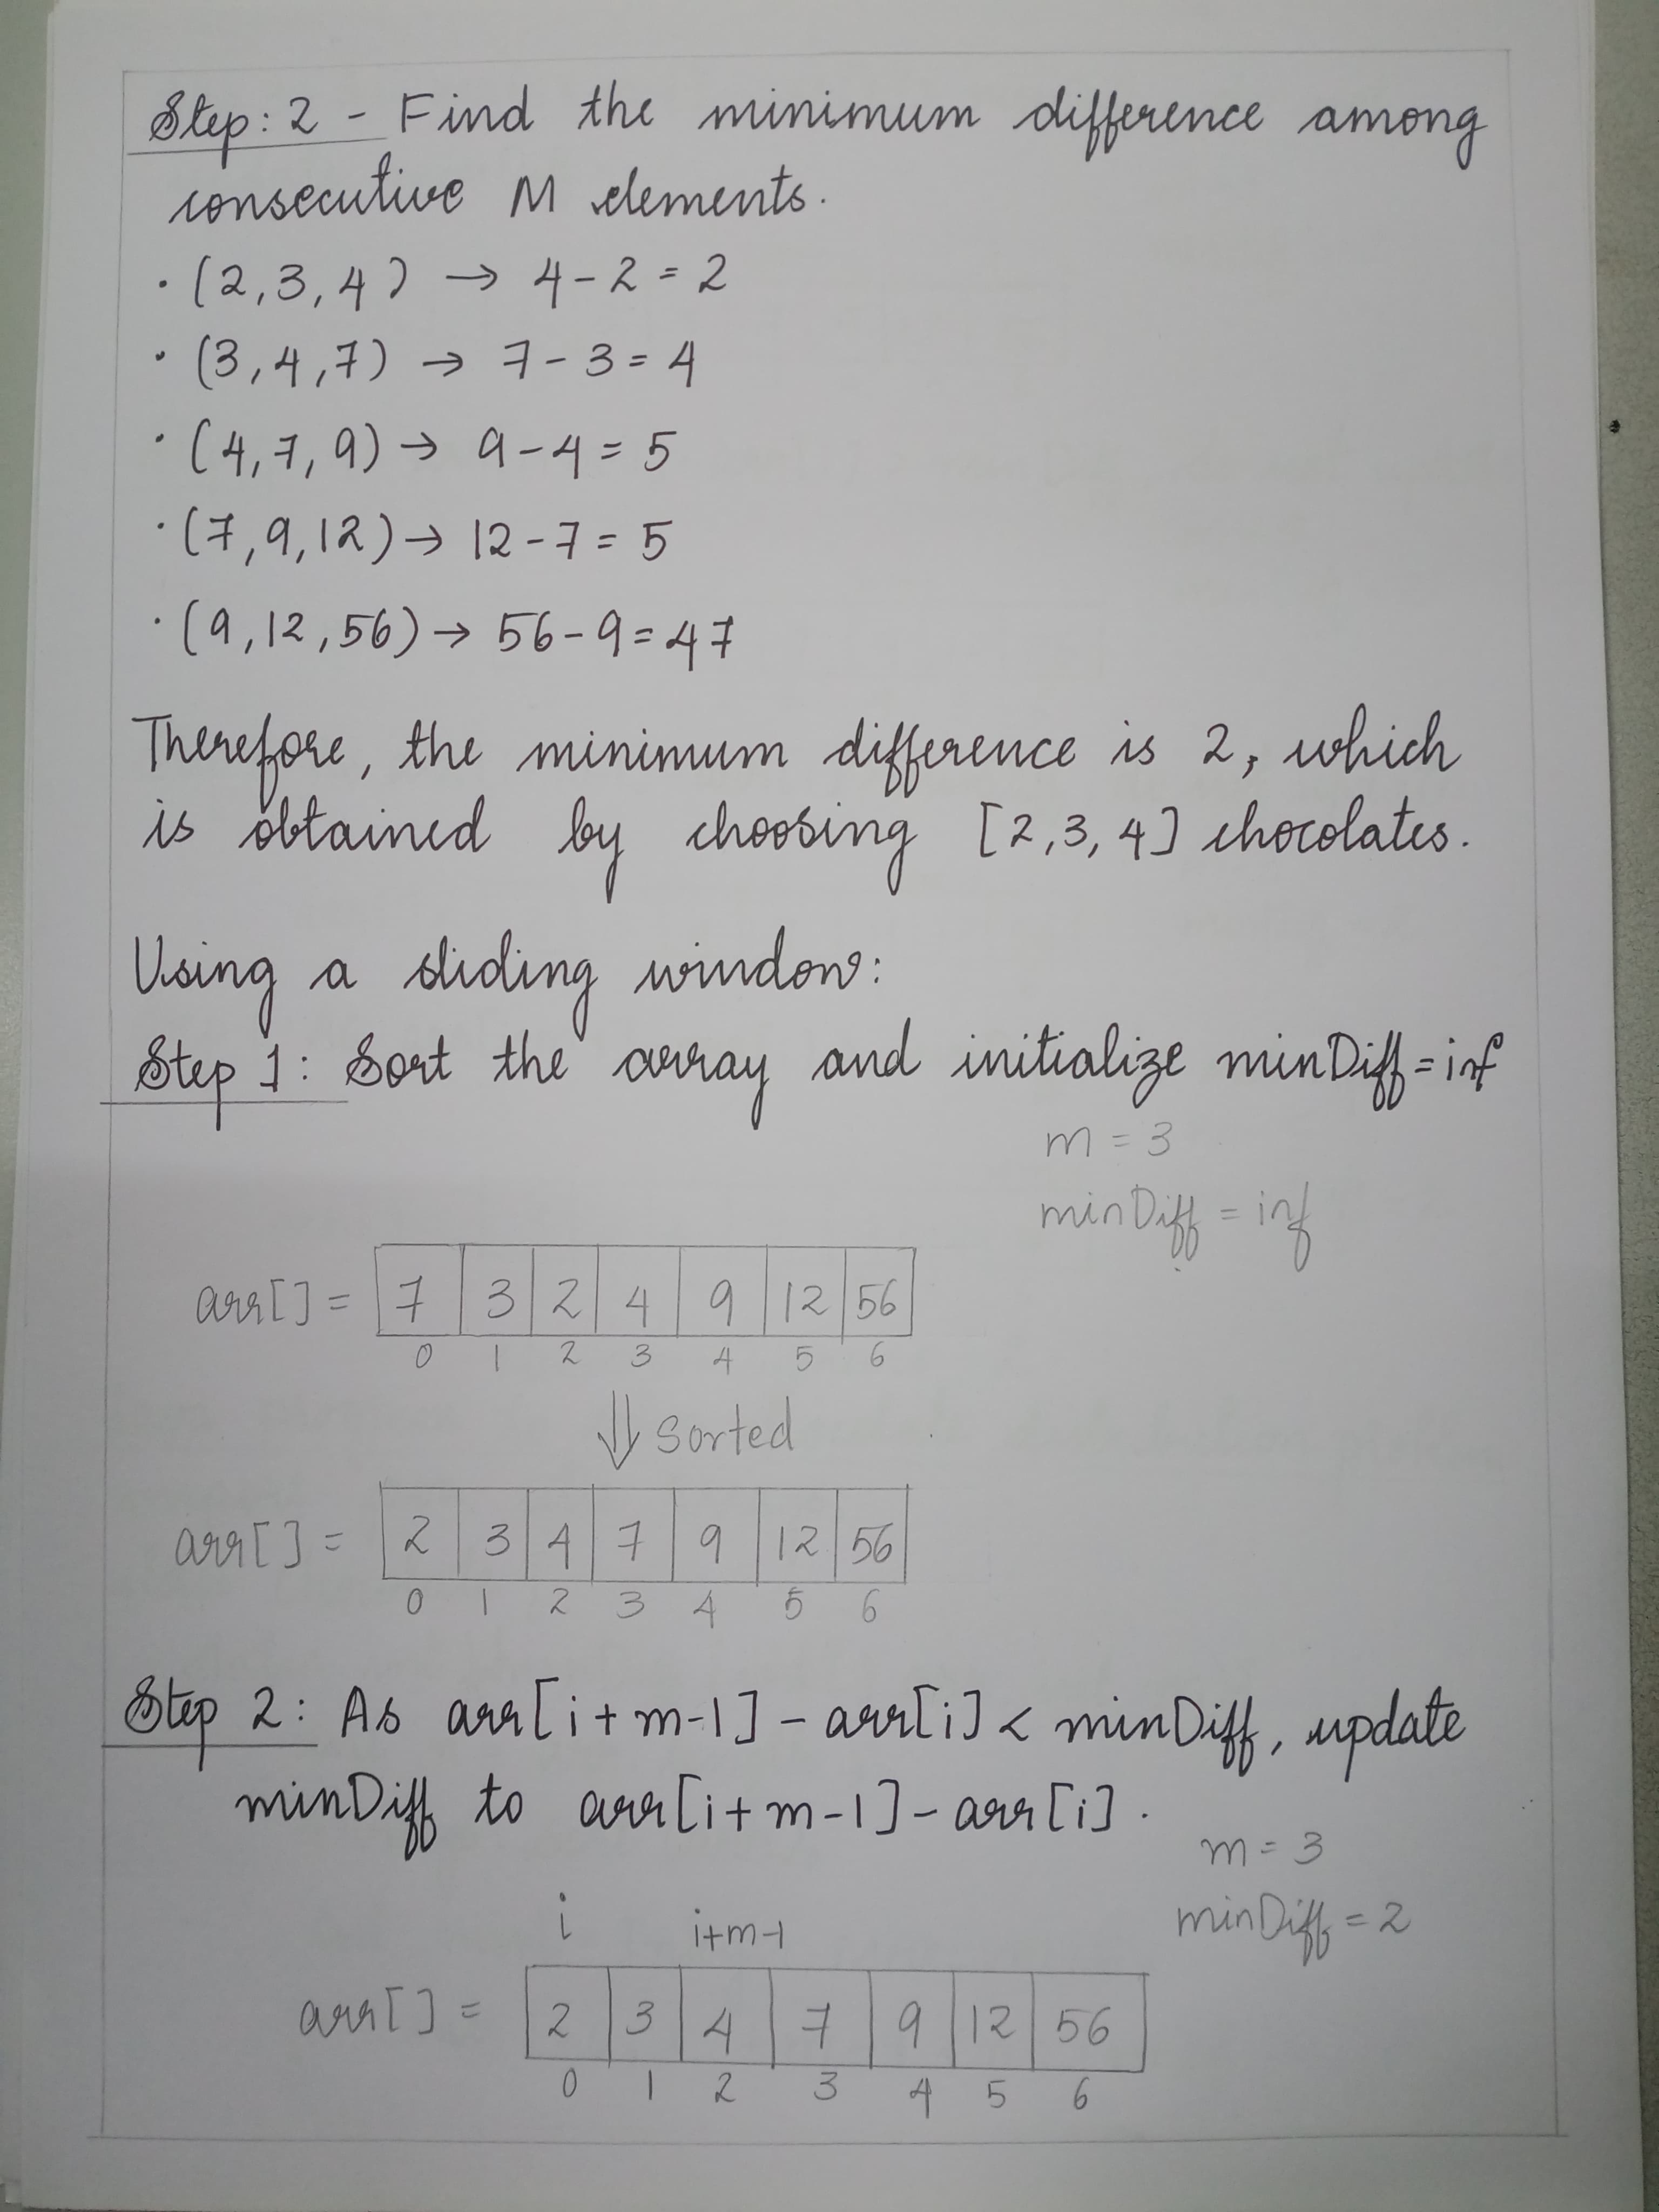 Step: 2 - Find the minimum difference among
consecutive M elements.
· (2,3,4) → 4-2 = 2
· (3,4,7) → 7-3 = 4
· (4,7,9) → 9-4 = 5
· (7,9,12) → 12-7 = 5
· (9,12,56) → 56-9 = 47
Therefore, the minimum difference is 2, which
is obtained by choosing [2,3,4] chocolates.
Using a sliding window:
Step 1: Sort the array and initialize minDiff = inf
m = 3
minDiff = inf
arr[] = 7 3 2 4 9 12 56
0 1 2 3 4 5 6
⇓ Sorted
arr[] = 2 3 4 7 9 12 56
0 1 2 3 4 5 6
Step 2: As arr[i+m-1] - arr[i] < minDiff, update
minDiff to arr[i+m-1] - arr[i].
m = 3
minDiff = 2
i i+m-1
arr[] = 2 3 4 7 9 12 56
0 1 2 3 4 5 6